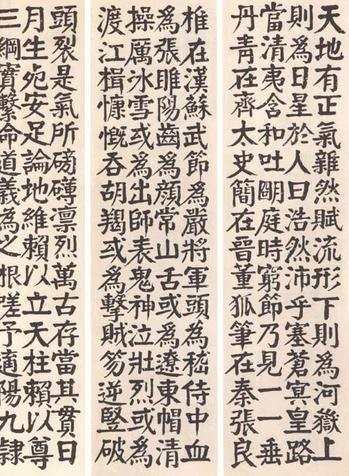 天地有正氣雜然賦流形下則為河嶽上
則為日星於人曰浩然沛乎塞蒼冥皇路
當清夷含和吐明庭時窮節乃見一一垂
丹青在齊太史簡在晉董狐筆在秦張良
椎在漢蘇武節為嚴將軍頭為嵇侍中血
為張睢陽齒為顏常山舌或為遼東帽清
操厲冰雪或為出師表鬼神泣壯烈或為
渡江楫慷慨吞胡羯或為擊賊笏逆豎破
頭裂是氣所磅礴凜烈萬古存當其貫日
月生死安足論地維賴以立天柱賴以尊
三綱實繫命道義為之根嗟予遘陽九隸